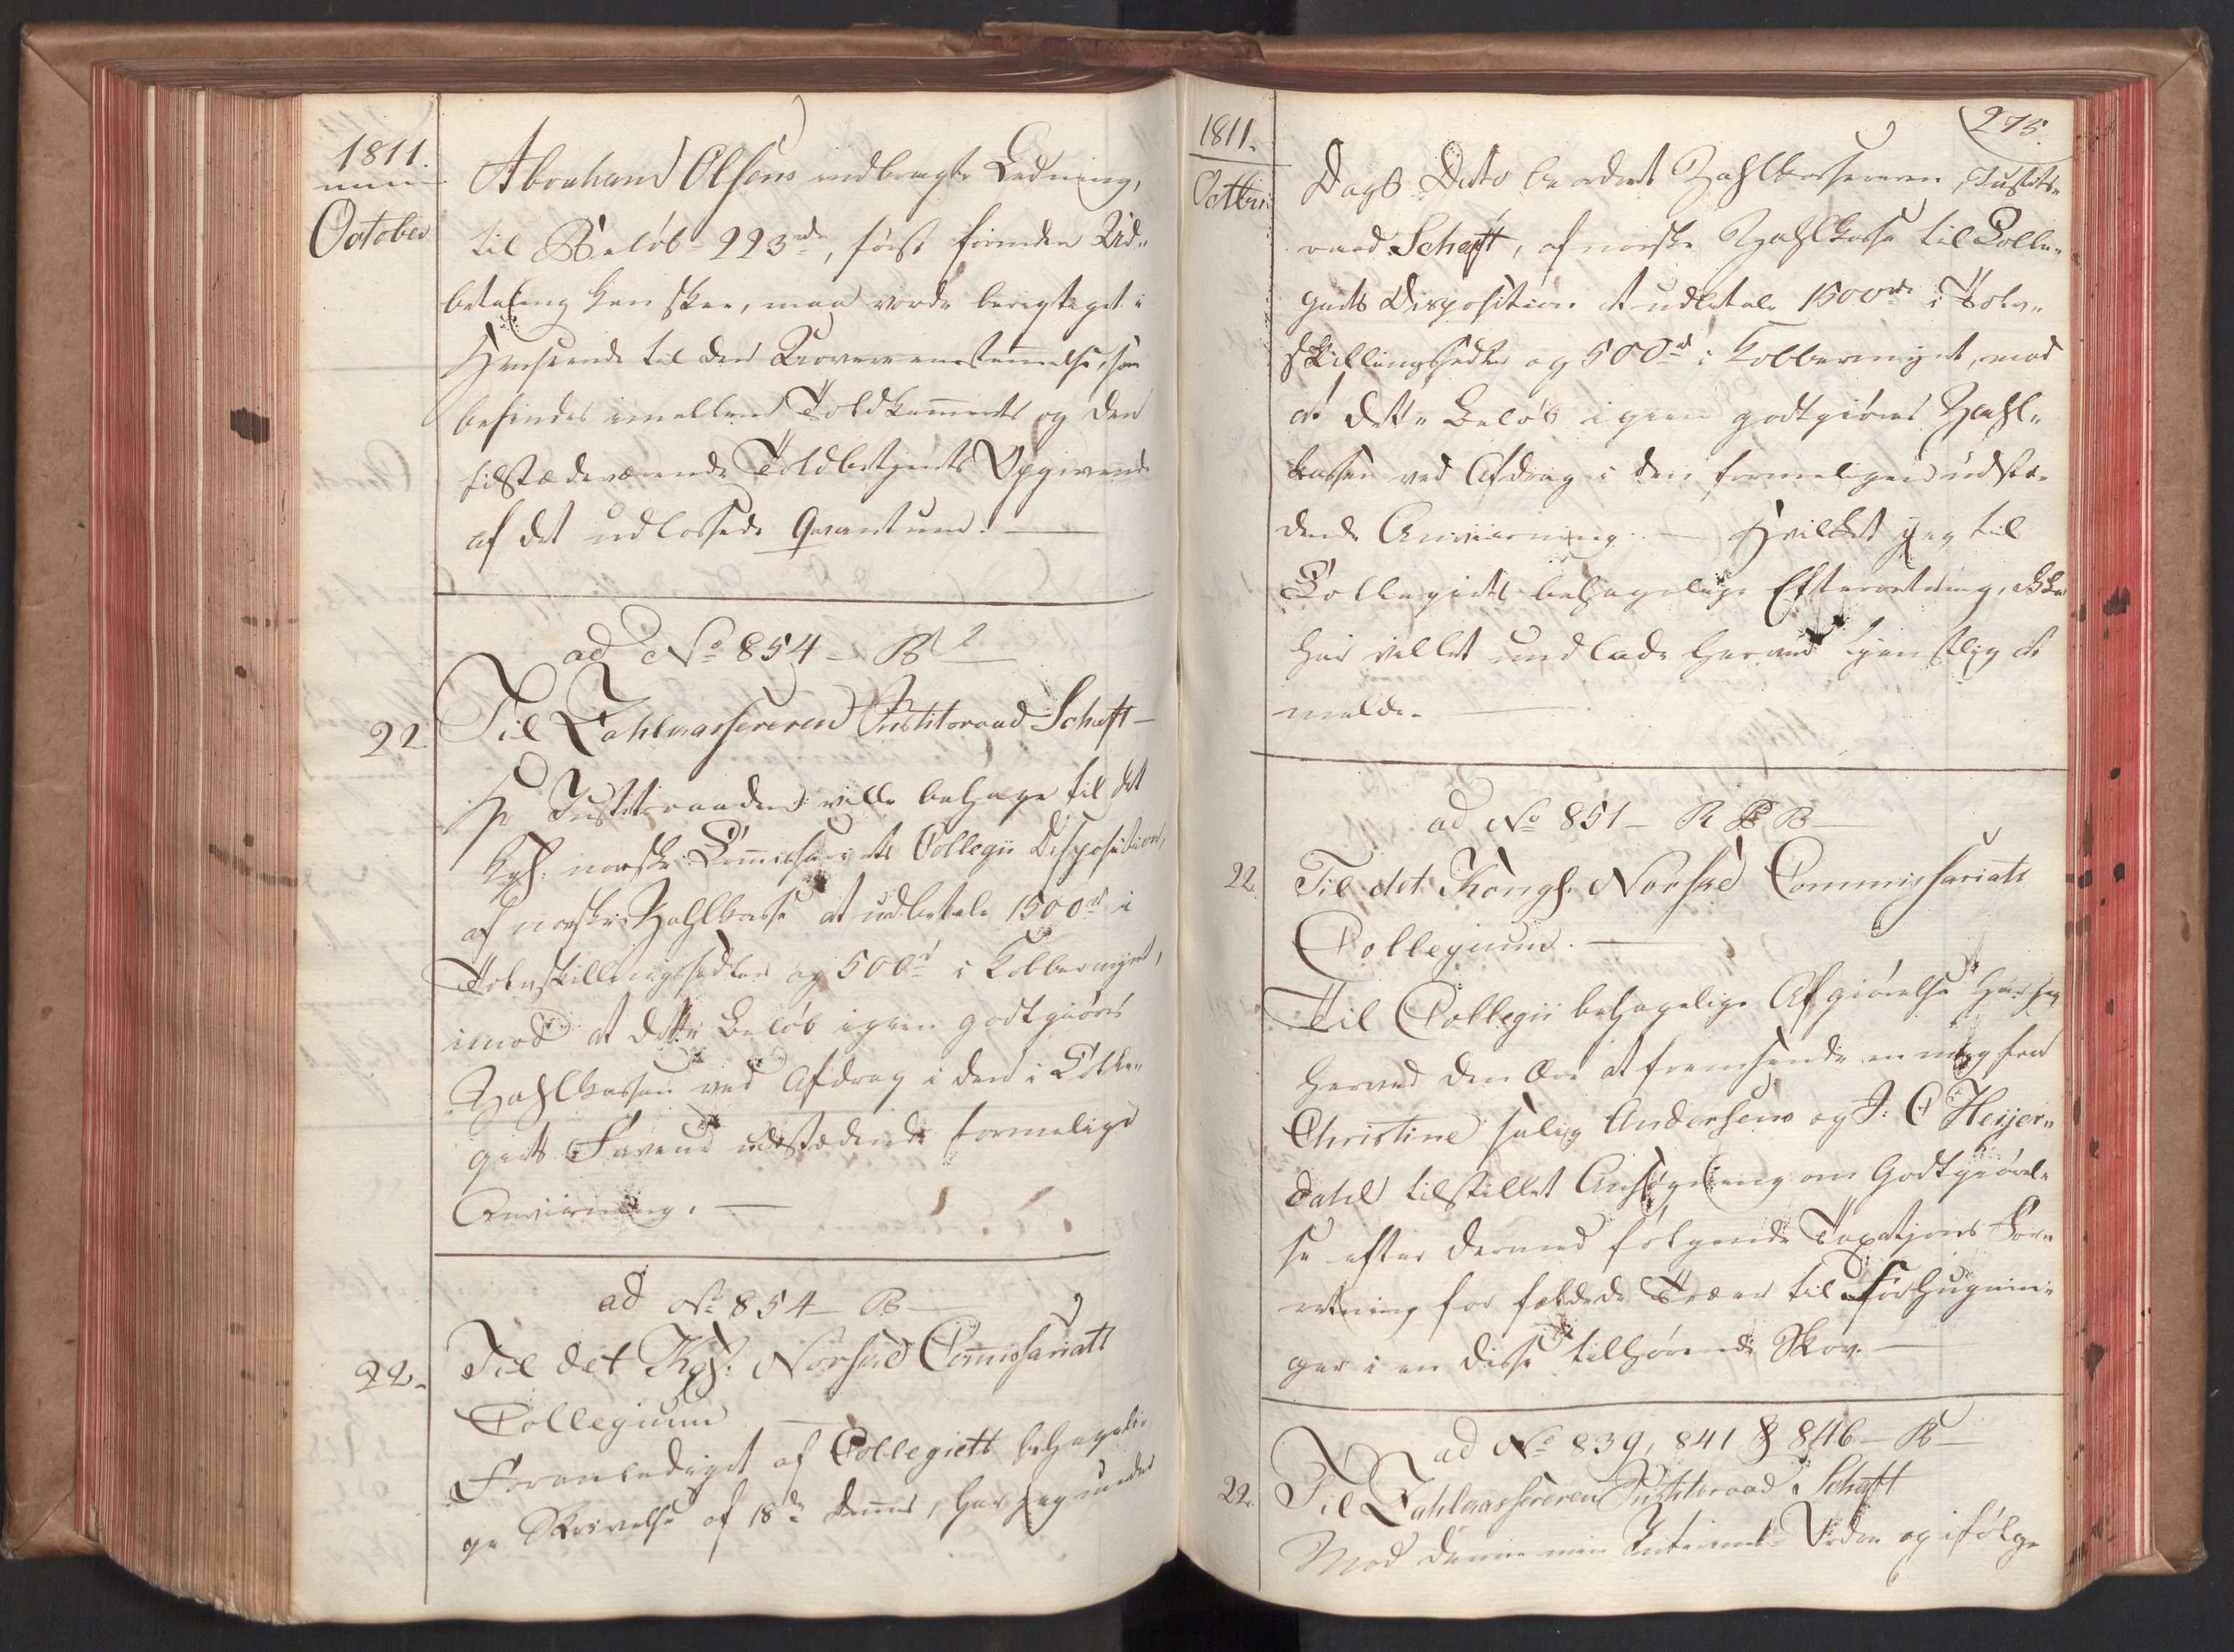 1811.
October
Abraham Olsens indbragte Ladning,
til Beløb 223 rdr, først forinden Ud-
betaling kan skee, maa vorde berigtiget i
Henseende til den Uoverensstemmelse, som
befindes imellem Toldkammerets og den
tilstædeværende Toldbetients Opgivende
af det udlossede Qvantum. —
ad No 854 — B
22.
Til Zahlcassereren Justitsraad Schaft —
Hr Justitsraaden ville behage til det
Kgl: norske Commissariats Collegii Disposition,
af norske Zahlkasse at udbetale 1500 rd i
Tolvskillingssedler og 500 rd i Kobbermynt,
imod at dette Beløb igien godtgiøres
Zahlkassen ved Afdrag i den i Colle-
giets Faveur udstædende formelige
Anviisning. —
ad No 854 — B —
22.
Til det Kgl: Norske Commissariats
Collegium
Foranlediget af Collegiets behageli-
ge Skrivelse af 18de dennes, har jeg under
1811.
Octbr:
275.
Dags Dato beordret Zahlkassereren, Justits-
raad Schaft, af norske Zahlkasse til Colle-
giets Disposition at udbetale 1500 rd i Tolv-
skillingssedler og 500 rd i Kobbermynt, mod
at dette Beløb igien godtgiøres Zahl-
kassen ved Afdrag i den formeligen udstæ-
dende Anviisning. — Hvilket jeg til
Collegiets behagelige Efterretning, ikke
har villet undlade herved tienstlig at
melde. —
ad No 851 — R B B —
22.
Til det Kongl. Norske Commissariats
Collegium. —
Til Collegii behagelige Afgiørelse har jeg
herved den Ære at fremsende en mig fra
Christine salig Andersens og J: C Heijer-
dahl tilstillet Ansøgning om Godtgiørel-
se efter dermed følgende Taxations For-
retning for fældede Træer til Forhugnin-
ger i en disse tilhørende Skov. —
ad No 839, 841 & 846 — B —
22.
Til Zahlcassereren Justitsraad Schaft
Mod denne min Interims-Ordre og ifølge